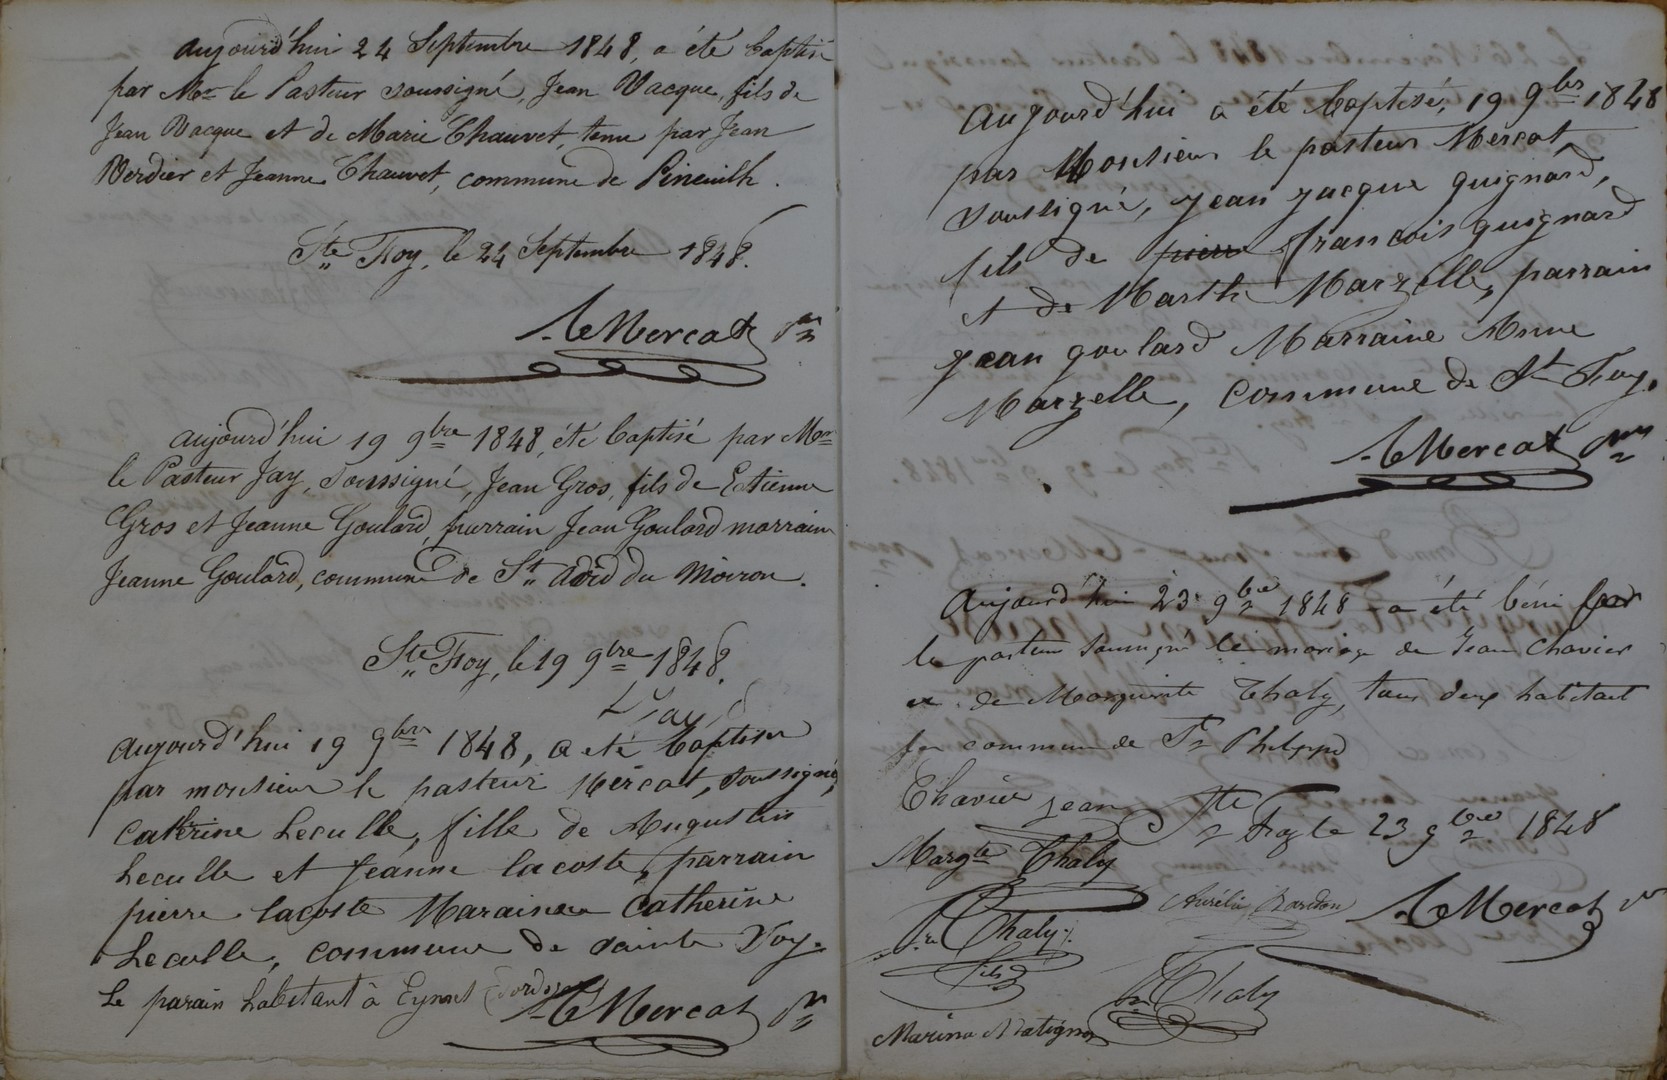 Aujourd'hui 24 Septembre 1848, a été baptisé
par Mr le Pasteur soussigné, Jean Vacque, fils de
Jean Vacque et de Marie Chauvet, tenu par Jean
Verdier et Jeanne Chauvet, commune de Pineuilh.
Ste Foy, le 24 Septembre 1848.
A. Mercat pr
Aujourd'hui 19 9bre 1848, été baptisé par Mr
le Pasteur Jay, soussigné, Jean Gros, fils de Estienne
Gros et Jeanne Goulard, parrain Jean Goulard marraine
Jeanne Goulard, commune de St du Moiron.
Ste Foy, le 19 9bre 1848.
L. Jay
Aujourd'hui 19 9bre 1848, a été baptisée
par monsieur le pasteur Mercat, soussigné,
Catherine Leculle, fille de Augustin
Leculle et Jeanne lacoste, parrain
pierre lacoste Maraine Catherine
Leculle, commune de sainte Foy.
Le parain habitant à Eymet (Dordogne)
A. Mercat pr
Aujourd'hui a été baptisé, 19 9bre 1848
par Monsieur le pasteur Mercat,
soussigné, jean jacque guignard,
fils de pierre francois guignard
et de Marthe Marzelle, parrain
jean goulard Marraine Anne
Marzelle, commune de Ste Foy.
A. Mercat pr
Aujourd'hui 23 9bre 1848 a été béni par
le pasteur soussigné le mariage de Jean Chavier
et de Marguerite Thaly, tous deux habitant
la commune de St Philippe
Chavier jean
Ste Foy le 23 9bre 1848
Margte Thaly
Aurélie Bardon
A. Mercat pr
Thaly
fils
Thaly
Marina Matignon